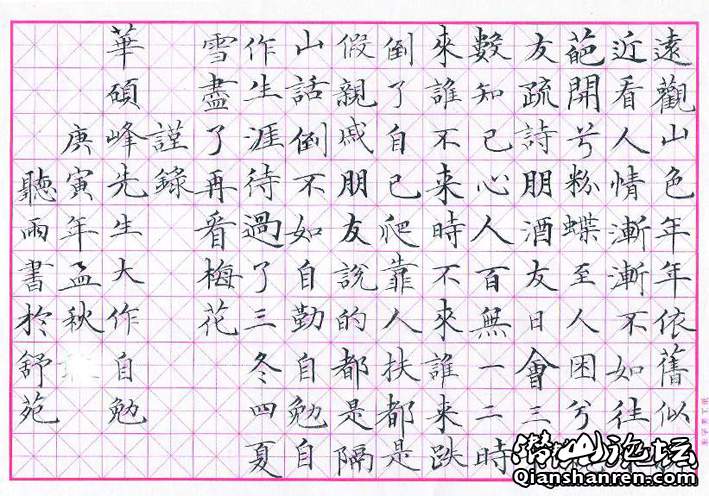 遠觀山色年年依舊似
近看人情漸漸不如往
葩開兮粉蝶至人困兮
友疏詩朋酒友日會三
數知己心人百無一二時
來誰不來時不來誰來跌
倒了自己爬靠人扶都是
假親戚朋友說的都是隔
山話倒不如自勤自勉自
作生涯待過了三冬四夏
雪盡了再看梅花
謹錄
華碩峰先生大作自勉
庚寅年孟秋
聽雨書於舒苑
潜山论坛
Qianshanren.com